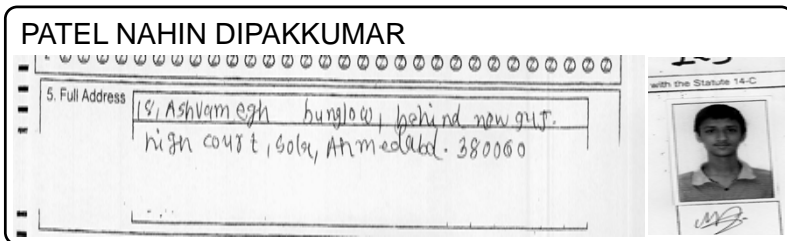 PATEL NAHIN DIPAKKUMAR
5. Full Address
18, Ashvamegh bunglow, behind new guj.
high court, Sola, Ahmedabd. 380060
with the Statute 14-C